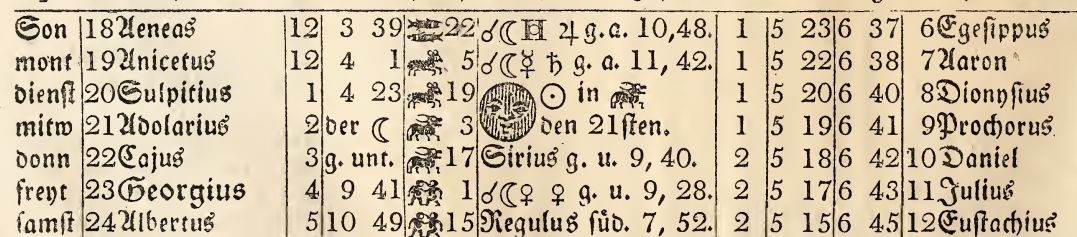 Son 18 Aeneas 12 3 39 22 ☌☾♅ ♃ g. a. 10, 48. 1 5 23 6 37 6 Egesippus
mont 19 Anicetus 12 4 1 5 ☌☾☿ ♄ g. a. 11, 42. 1 5 22 6 38 7 Aaron
dienst 20 Sulpitius 1 4 23 19 ☉ in 1 5 20 6 40 8 Dionysius
mitw 21 Adolarius 2 der ☾ 3 den 21sten. 1 5 19 6 41 9 Prochorus
donn 22 Cajus 3 g. unt. 17 Sirius g. u. 9, 40. 2 5 18 6 42 10 Daniel
freyt 23 Georgius 4 9 41 1 ☌☾♀ ♀ g. u. 9, 28. 2 5 17 6 43 11 Julius
samst 24 Albertus 5 10 49 15 Regulus süd. 7, 52. 2 5 15 6 45 12 Eustachius